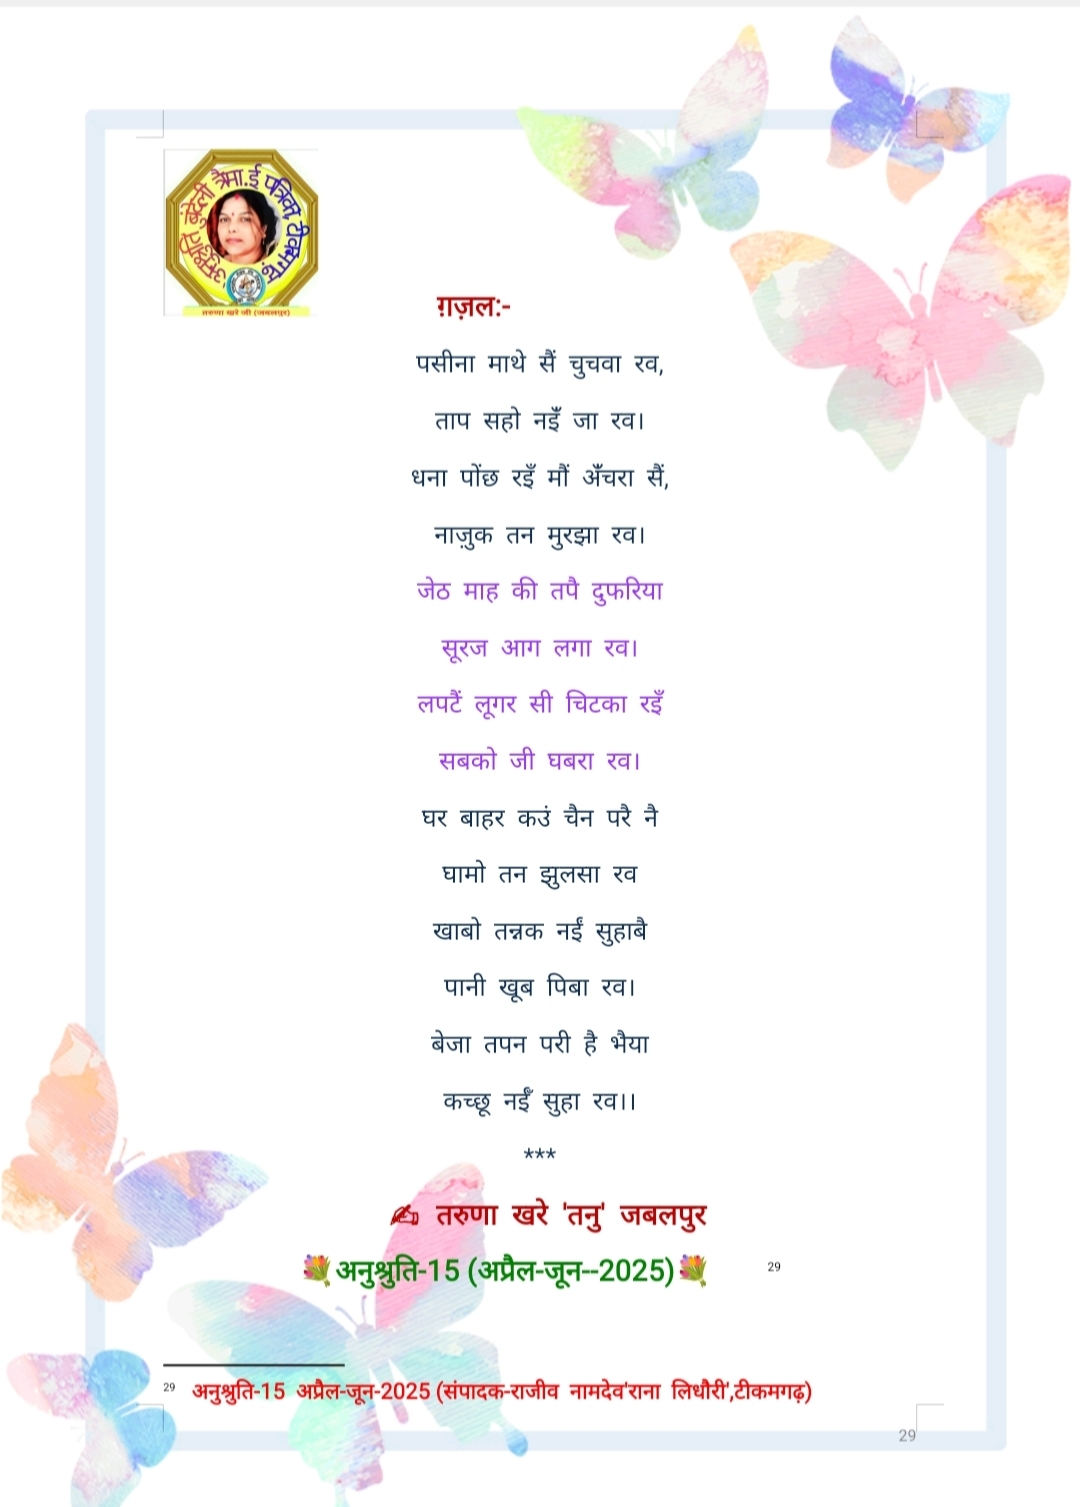 अनुश्रुति बुंदेली त्रैमा.ई पत्रिका, टीकमगढ़
तरुणा खरे जी (जबलपुर)
ग़ज़ल:-
पसीना माथे सैं चुचवा रव,
ताप सहो नइँ जा रव।
धना पोंछ रइँ मौं अँचरा सैं,
नाज़ुक तन मुरझा रव।
जेठ माह की तपै दुफरिया
सूरज आग लगा रव।
लपटैं लूगर सी चिटका रइँ
सबको जी घबरा रव।
घर बाहर कउं चैन परै नै
घामो तन झुलसा रव
खाबो तन्नक नईं सुहाबै
पानी खूब पिबा रव।
बेजा तपन परी है भैया
कच्छू नइँ सुहा रव।।
***
✍ तरुणा खरे 'तनु' जबलपुर
💐अनुश्रुति-15 (अप्रैल-जून--2025)💐 29
29 अनुश्रुति-15 अप्रैल-जून-2025 (संपादक-राजीव नामदेव'राना लिधौरी',टीकमगढ़)
29